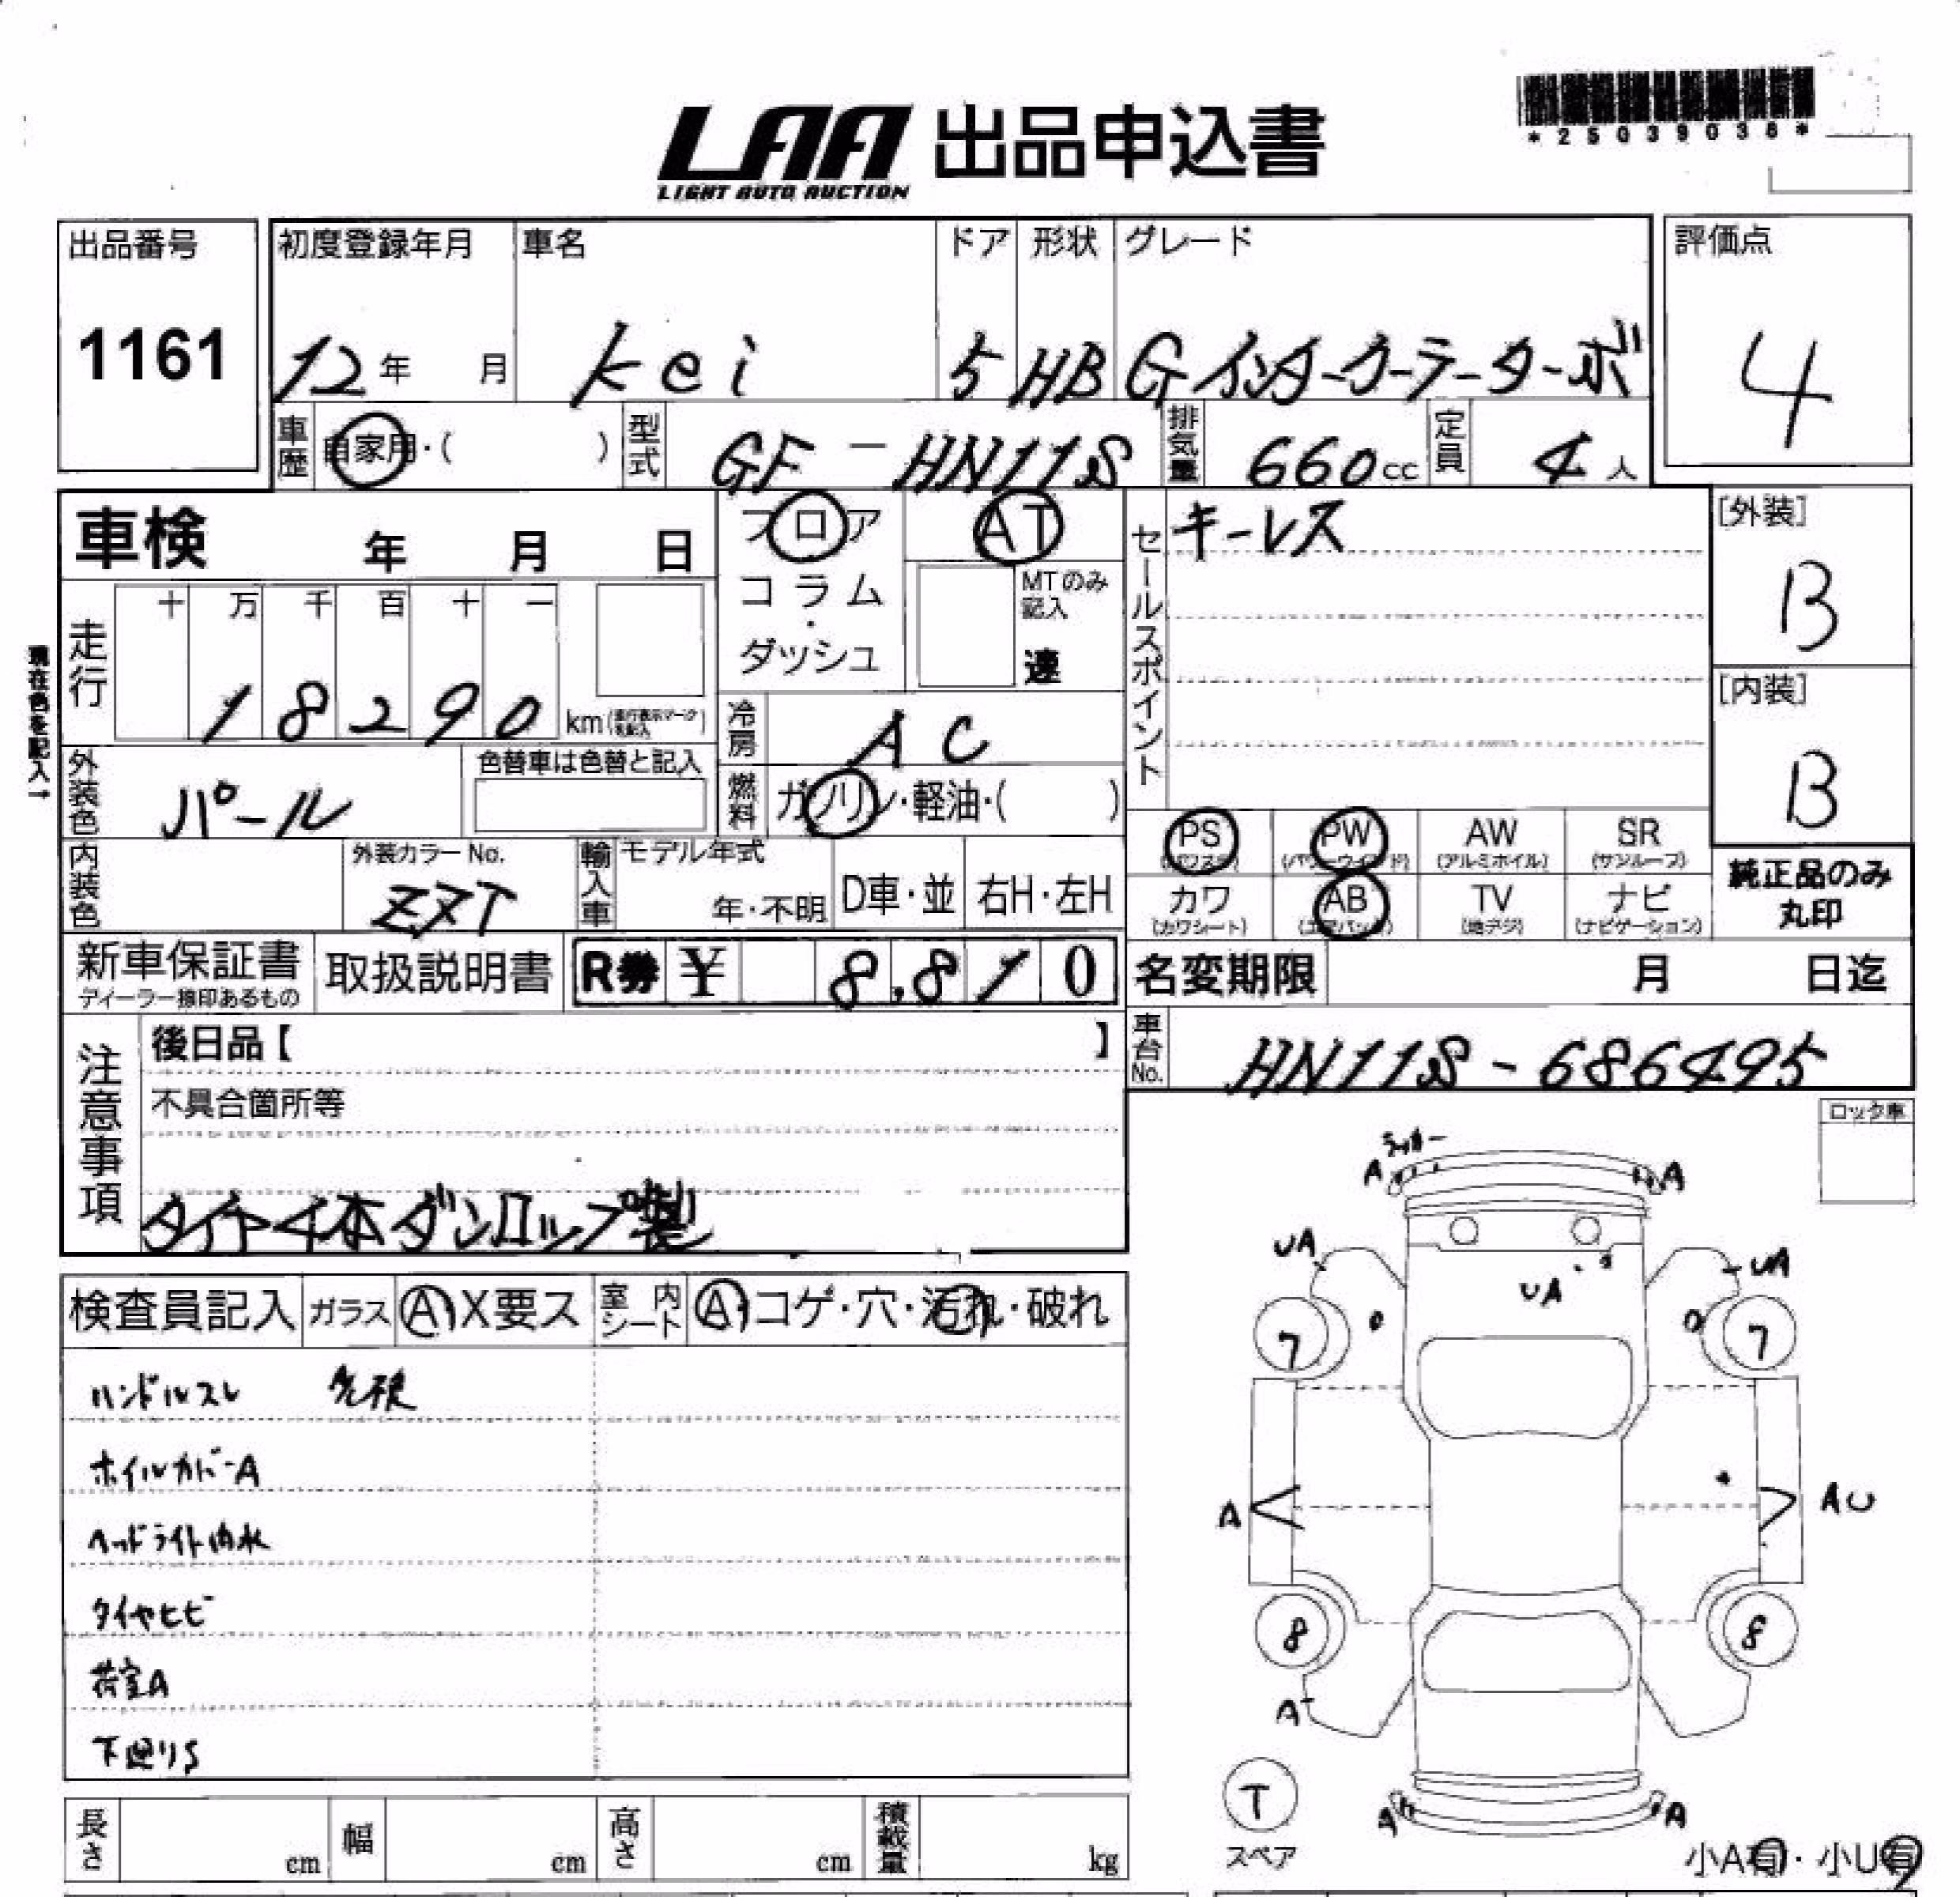 LAA 出品申込書
LIGHT AUTO AUCTION
*25039038*
出品番号 初度登録年月 車名 ドア 形状 グレード 評価点
1161 12年 月 Kei 5 HB Gインタークーラーターボ 4
車歴 自家用・( ) 型式 GF-HN11S 排気量 660cc 定員 4人
車検 年 月 日 フロア AT セールスポイント キーレス [外装]
コラム・ダッシュ MTのみ記入 速 B
現在色を記入→
走行 十 万 千 百 十 一
18290 km [内装]
冷房 AC B
外装色 パール 色替車は色替と記入 燃料 ガソリン・軽油・( )
PS AW SR
PW (アルミホイル) (サンルーフ)
内装色 外装カラーNo. 輸入車 モデル年式 年・不明 D車・並 右H・左H
カワ AB TV ナビ 純正品のみ
(カワシート) (エアバッグ) (地デジ) (ナビゲーション) 丸印
新車保証書 取扱説明書 R券 ¥ 8,810 名変期限 月 日迄
ディーラー捺印あるもの
注意事項 後日品【 】 車台No. HN11S-686495
不具合箇所等 ロック車
タイヤ4本ダンロップ製
検査員記入 ガラス A X要ス 室内シート A・コゲ・穴・汚れ・破れ
ハンドルスレ
ホイルカバーA
ヘッドライト内水
タイヤヒビ
荷室A
下廻りS
A A
UA UA
UA
7 7
A AU
8 8
A
T
スペア
A A
小A有・小U有
長さ cm 幅 cm 高さ cm 積載量 kg